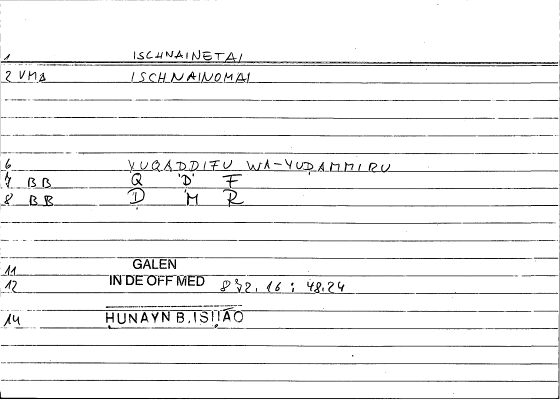 1 ISCHNAINETAI
2 VMA ISCHNAINOMAI
6 YUQADDIFU WA-YUḌAMMIRU
7 BB Q 'D' F
8 BB Ḍ M R
11 GALEN
12 IN DE OFF MED 832.16 : 48.24
14 ḤUNAYN B. ISḤĀQ